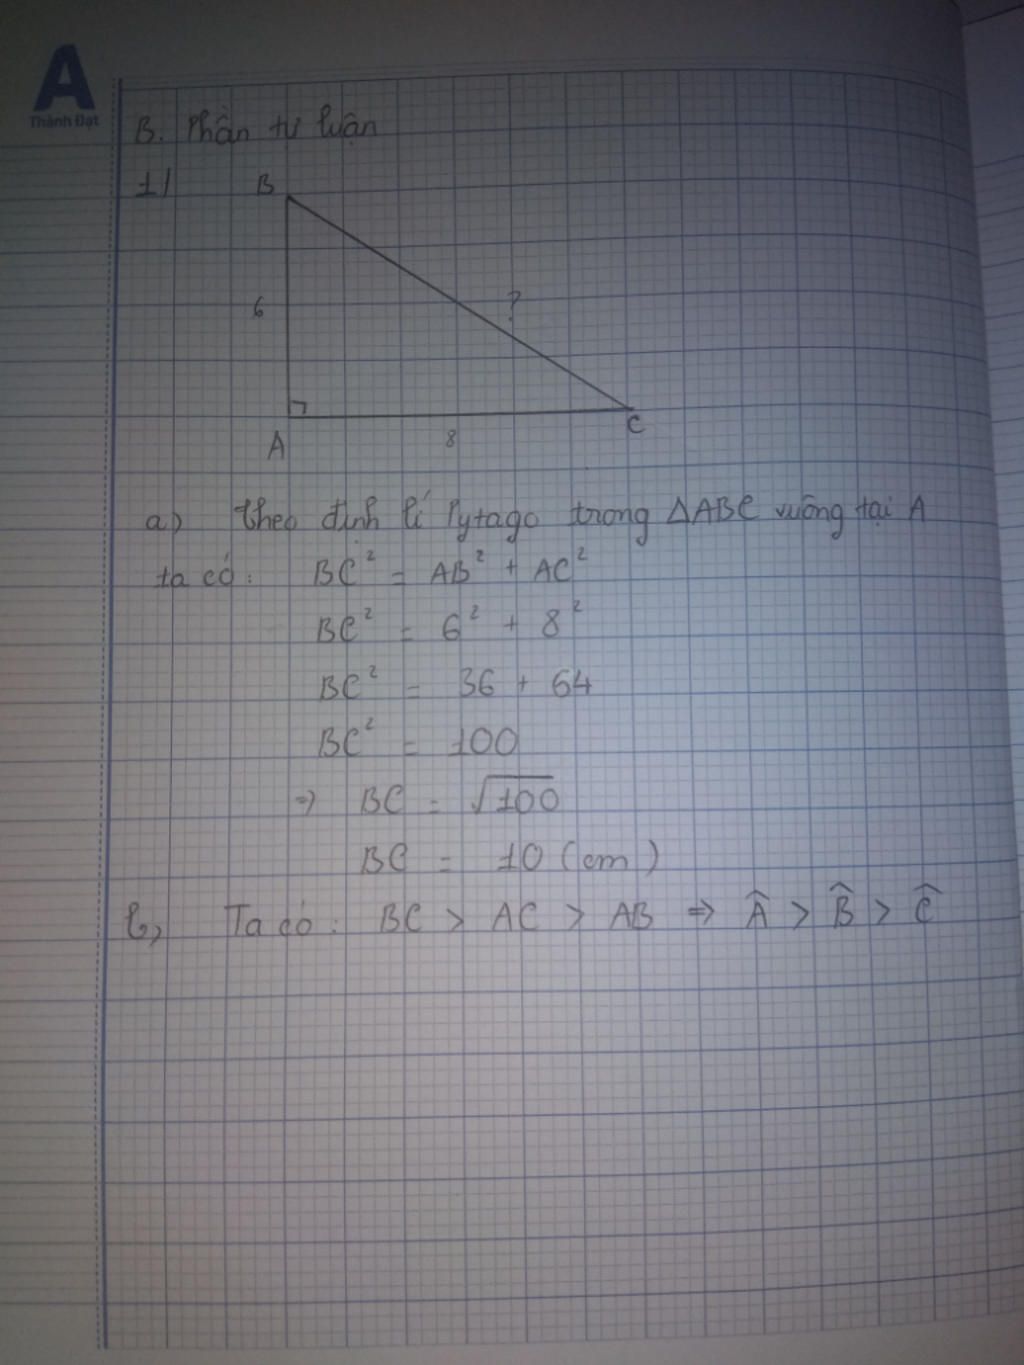 A
Thành Đạt
B. Phần tự luận
1/
B
6
?
A
8
C
a) theo định lí Pytago trong ΔABC vuông tại A
ta có: BC² = AB² + AC²
BC² = 6² + 8²
BC² = 36 + 64
BC² = 100
⇒ BC = √100
BC = 10 (cm)
b, Ta có: BC > AC > AB ⇒ Â > B̂ > Ĉ